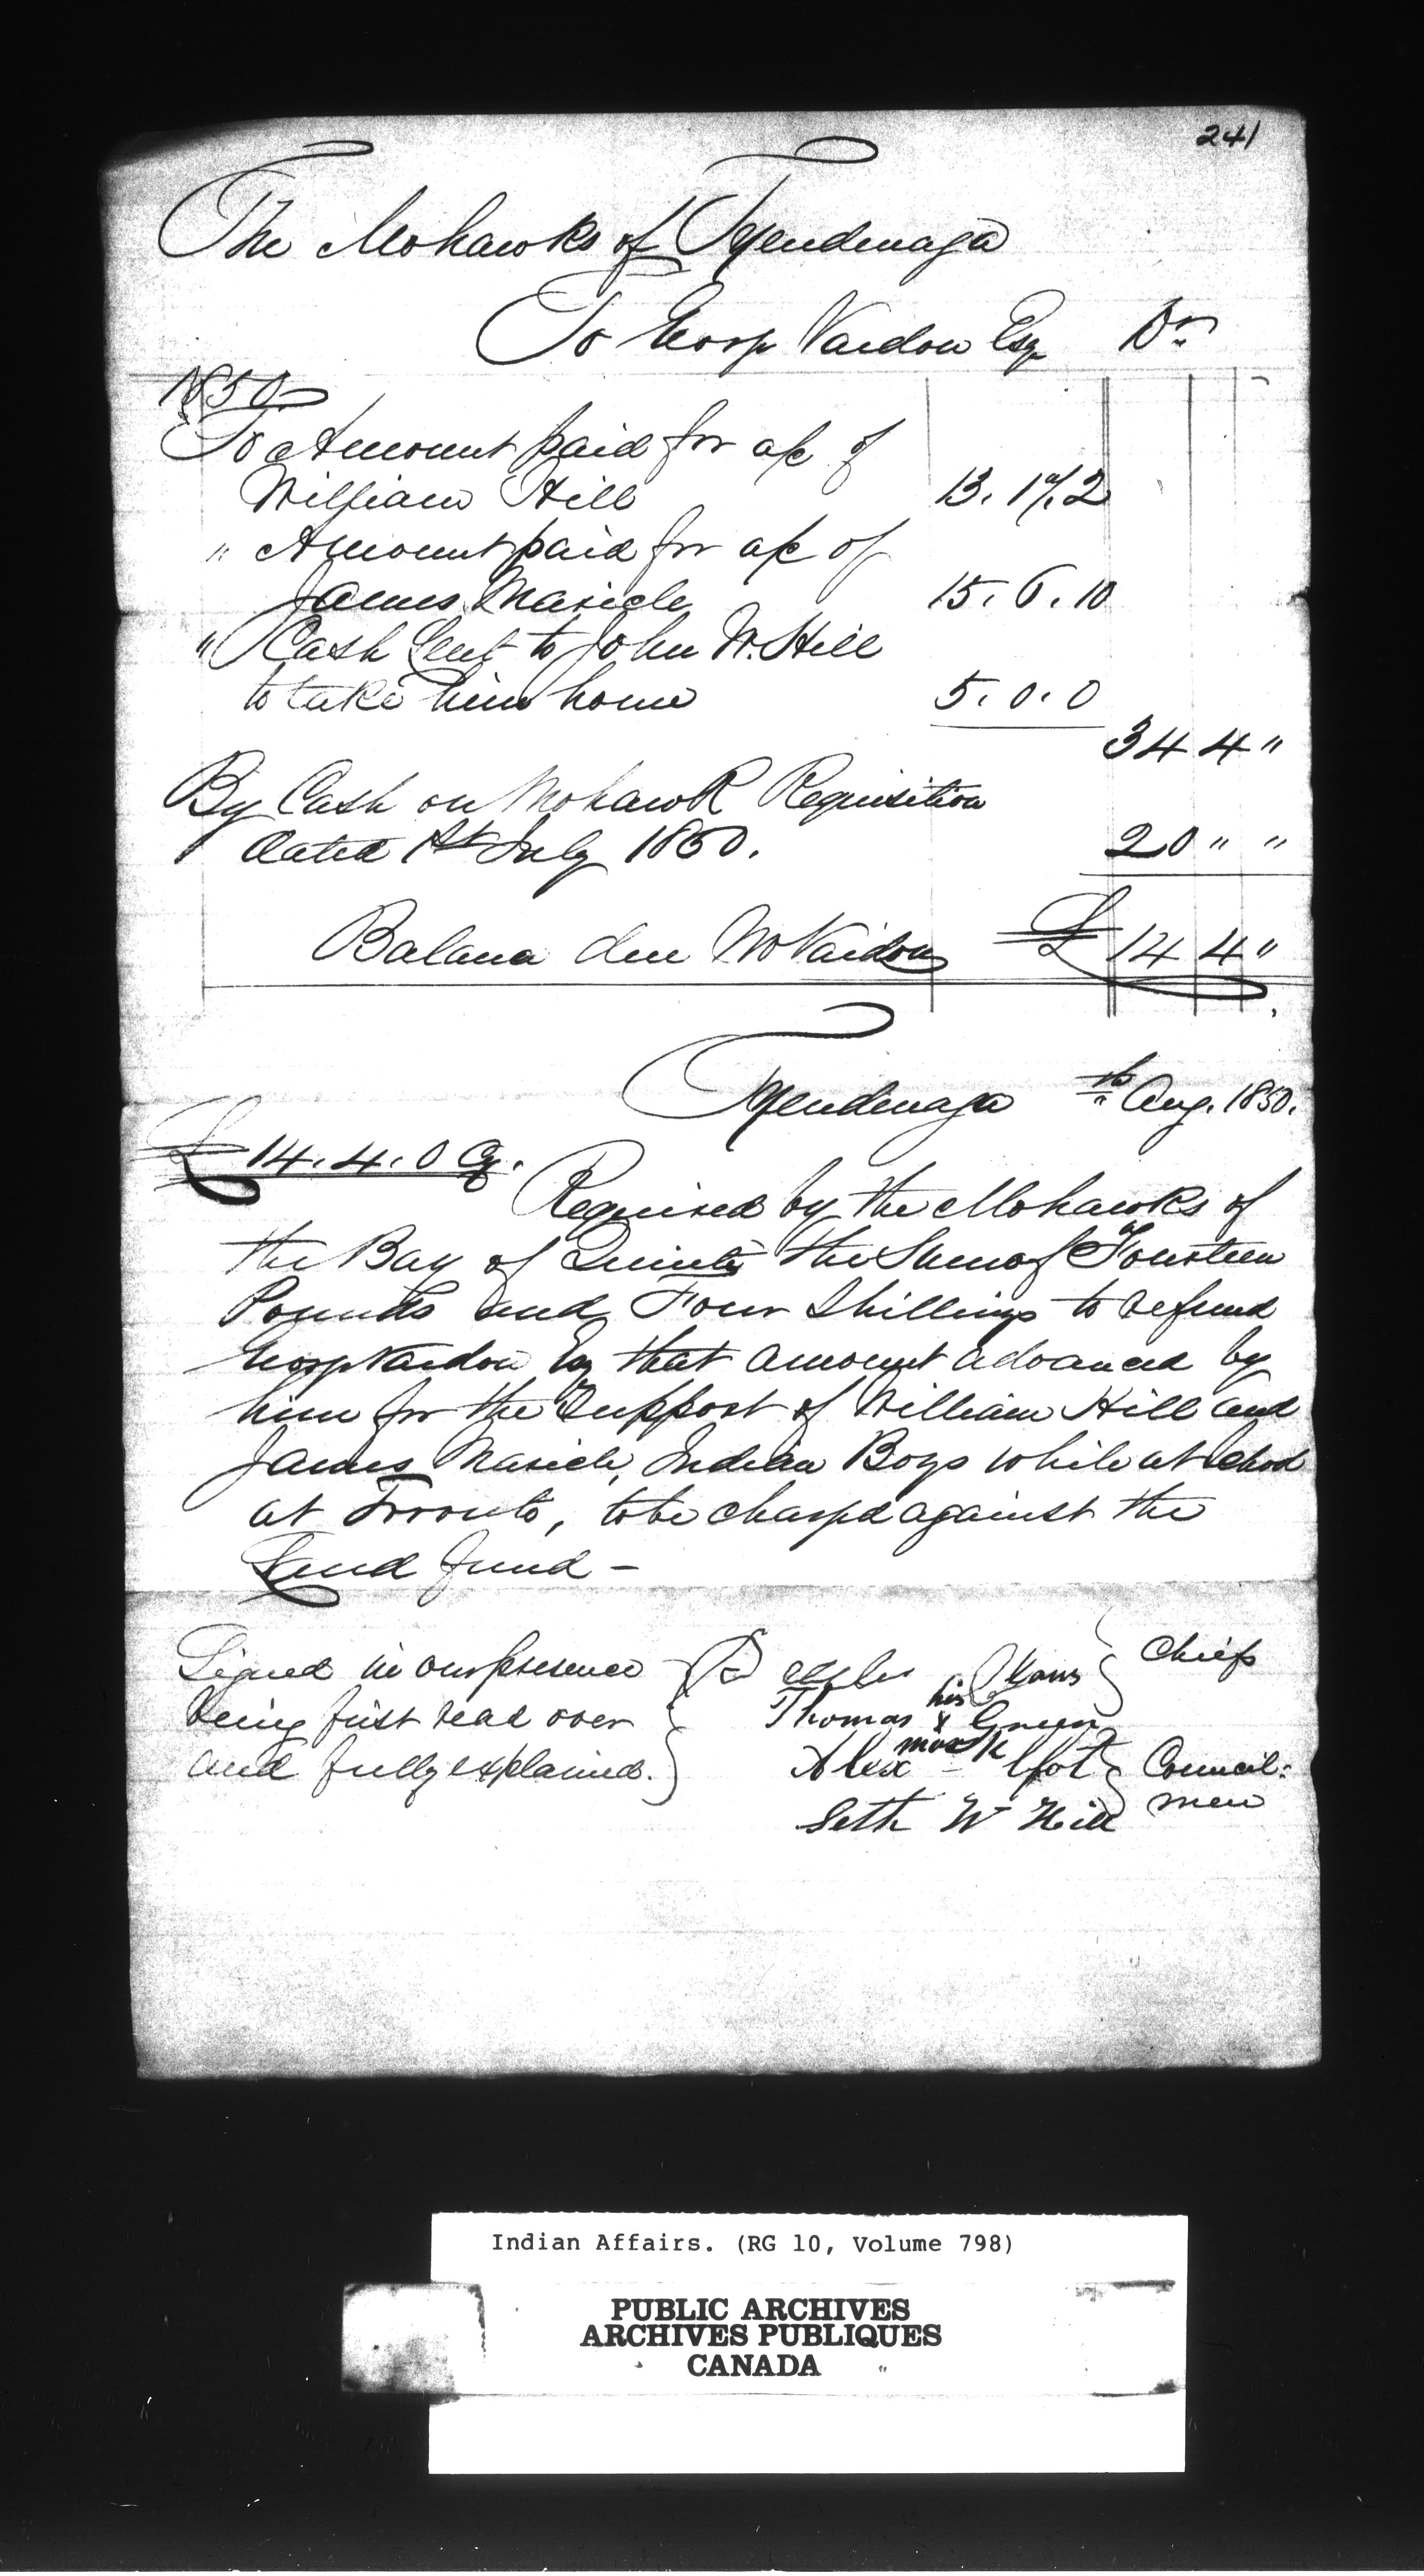 241
The Mohawks of Tyendenaga
To George Vardon Esqr Dr.
1850
To Amount paid for a/c of
William Hill 13. 17. 2
" Amount paid for a/c of
James Maricle 15. 6. 10
" Cash lent to John W. Hill
to take him home 5. 0. 0
34 4 "
By Cash on Mohawk Requisition
dated 1st July 1850. 20 " "
Balance due Mr Vardon £ 14 4 "
Tyendenaga th Aug. 1850.
£ 14. 4. 0 Cy.
Required by the Mohawks of
the Bay of Quinté the Sum of Fourteen
Pounds and Four Shillings to refund
George Vardon Esq that amount advanced by
him for the Support of William Hill and
James Maricle, Indian Boys while at School
at Toronto, to be charged against the
Land fund —
Signed in our presence
being first read over
and fully explained.
Chiefs
Thomas his x mark Green
Alex
Seth W Hill
Council:
men
Indian Affairs. (RG 10, Volume 798)
PUBLIC ARCHIVES
ARCHIVES PUBLIQUES
CANADA